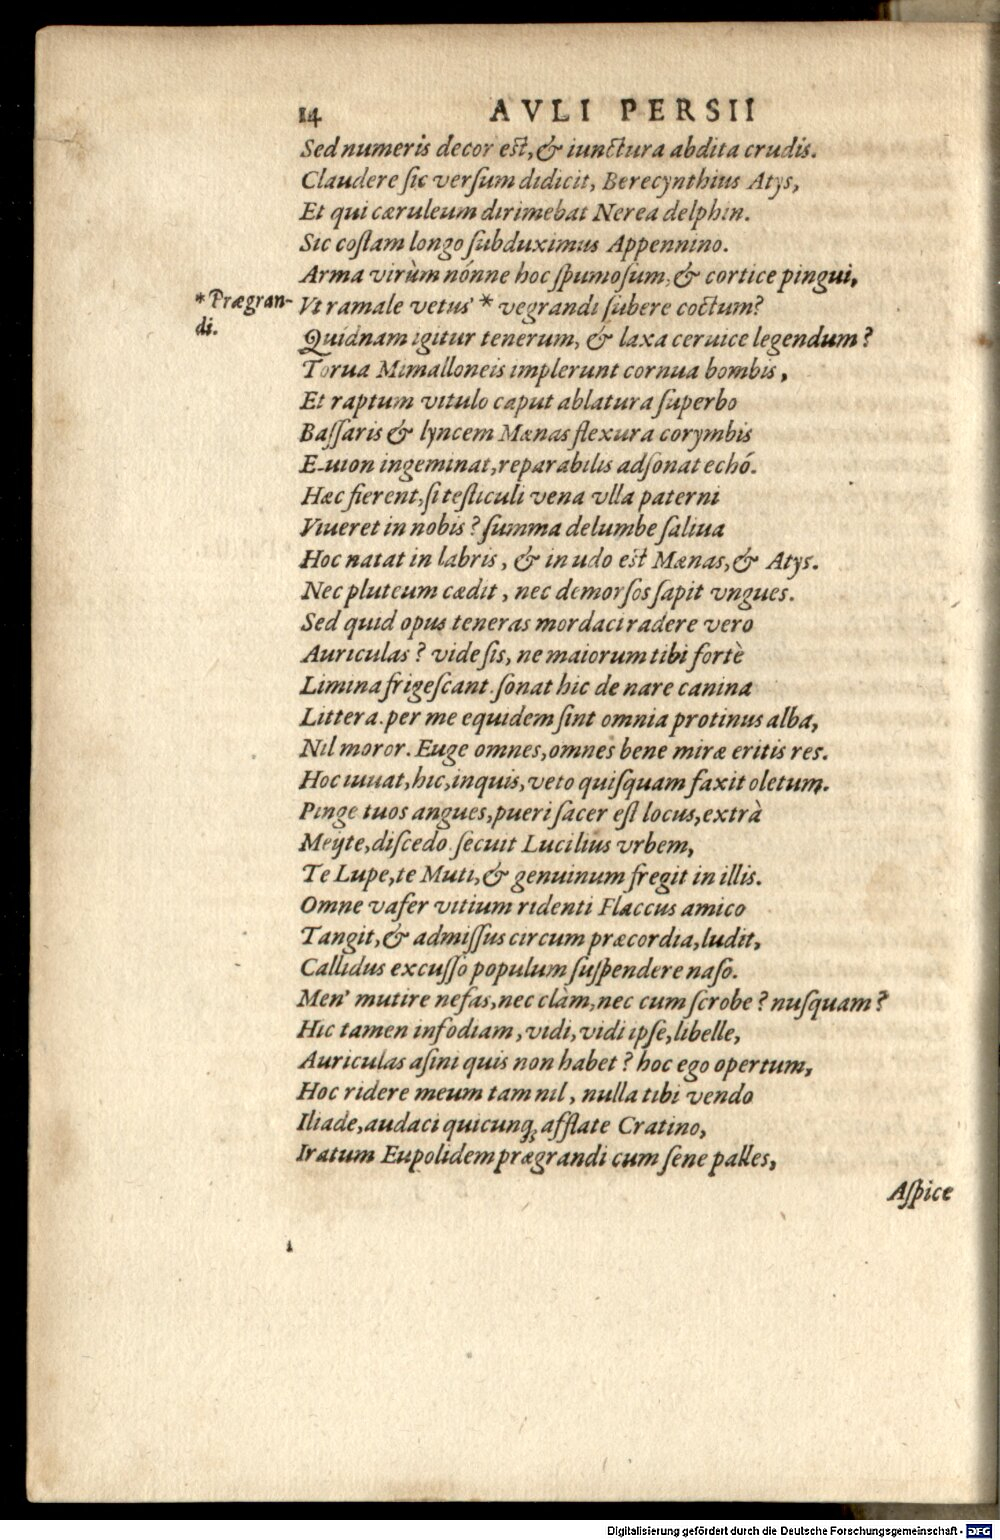 14 AVLI PERSII
Sed numeris decor est, & iunctura abdita crudis.
Claudere ſic verſum didicit, Berecynthius Atys,
Et qui cæruleum dirimebat Nerea delphin.
Sic coſtam longo ſubduximus Appennino.
Arma virùm nónne hoc ſpumoſum, & cortice pingui,
*Prægran-
di.
Vt ramale vetus * vegrandi ſubere coctum?
Quidnam igitur tenerum, & laxa ceruice legendum?
Torua Mimalloneis implerunt cornua bombis,
Et raptum vitulo caput ablatura ſuperbo
Baſſaris & lyncem Mænas flexura corymbis
E-uion ingeminat, reparabilis adſonat echó.
Hæc fierent, ſi teſticuli vena vlla paterni
Viueret in nobis? ſumma delumbe ſaliua
Hoc natat in labris, & in udo est Mænas, & Atys.
Nec pluteum cædit, nec demorſos ſapit vngues.
Sed quid opus teneras mordaci radere vero
Auriculas? vide ſis, ne maiorum tibi fortè
Limina frigeſcant. ſonat hic de nare canina
Littera. per me equidem ſint omnia protinus alba,
Nil moror. Euge omnes, omnes bene miræ eritis res.
Hoc iuuat, hic, inquis, veto quiſquam faxit oletum.
Pinge tuos angues, pueri ſacer eſt locus, extrà
Meijte, diſcedo. ſecuit Lucilius vrbem,
Te Lupe, te Muti, & genuinum fregit in illis.
Omne vafer vitium ridenti Flaccus amico
Tangit, & admiſſus circum præcordia, ludit,
Callidus excuſſo populum ſuſpendere naſo.
Men' mutire nefas, nec clàm, nec cum ſcrobe? nuſquam?
Hic tamen infodiam, vidi, vidi ipſe, libelle,
Auriculas aſini quis non habet? hoc ego opertum,
Hoc ridere meum tam nil, nulla tibi vendo
Iliade, audaci quicunq; afflate Cratino,
Iratum Eupolidem prægrandi cum ſene palles,
Aſpice
Digitalisierung gefördert durch die Deutsche Forschungsgemeinschaft - DFG